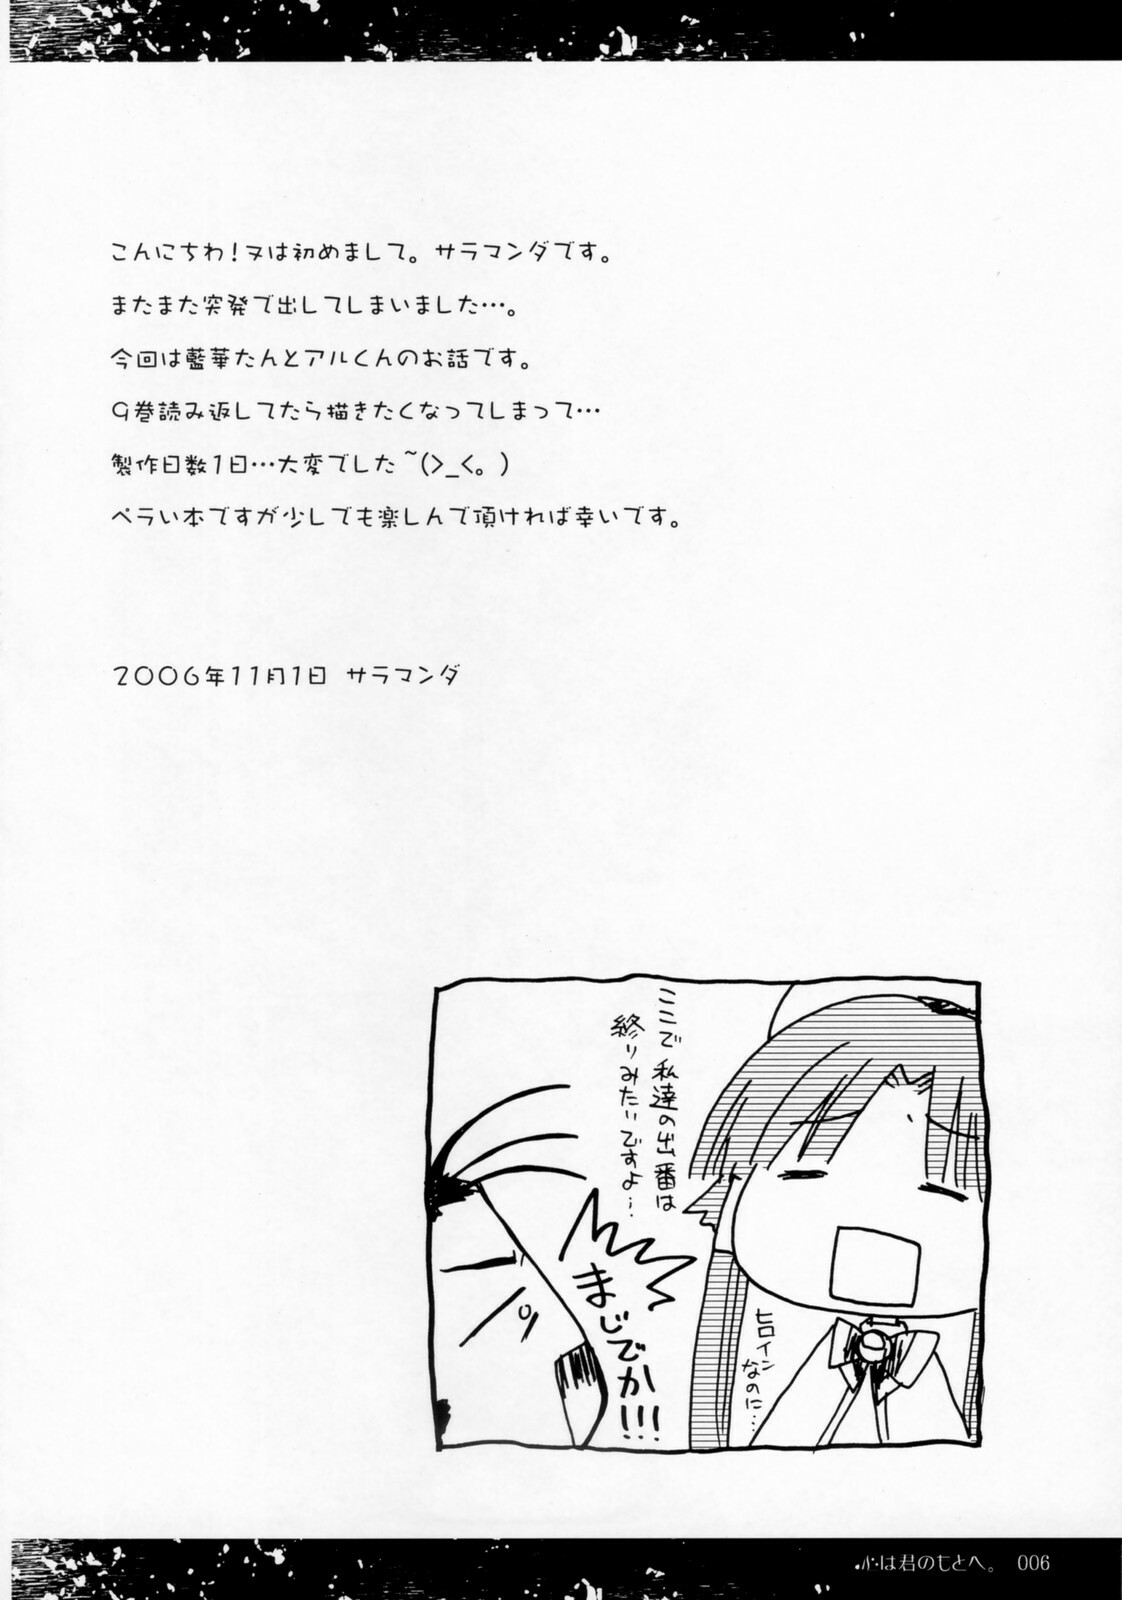 こんにちわ！ヌは初めまして。サラマンダです。
またまた突発で出してしまいました…。
今回は藍華たんとアルくんのお話です。
９巻読み返してたら描きたくなってしまって…
製作日数１日…大変でした～(>_<。)
ペラい本ですが少しでも楽しんで頂ければ幸いです。
２００６年１１月１日 サラマンダ
ここで私達の出番は
終りみたいですよ…
まじでか!!!
ヒロイン
なのに…
心は君のもとへ。 006